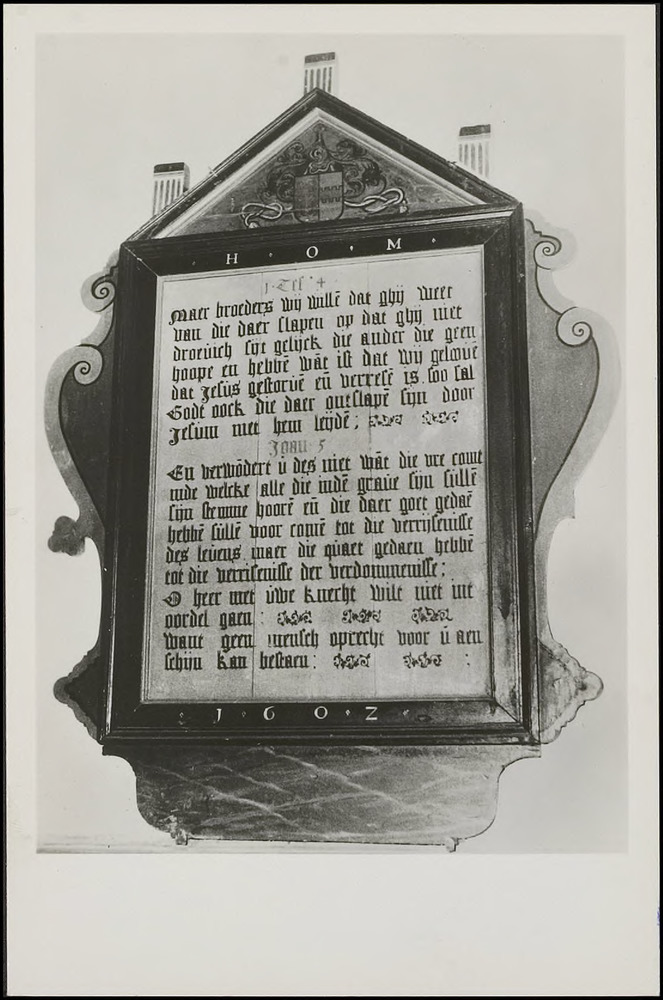 H · O · M ·
1 Tes · 4 ·
Maer broeders wij willē dat ghij weet
van die daer slapen op dat ghij niet
droevich sijt gelijck die ander die geen
hoope en hebbē wāt ist dat wij gelouvē
dat Jesus gestorvē eñ verresē is soo sal
Godt oock die daer ontslapē sijn door
Jesum met hem leydē ;
Joan 5
En verwōdert ú des niet wāt die vre comt
inde welcke alle die indē grave sijn súllē
sijn stemme hoorē eñ die daer goet gedaē
hebbē súllē voor comē tot die verrijsenisse
des levens maer die quaet gedaen hebbē
tot die verrisenisse der verdommenisse ;
O heer met úwe knecht wilt niet int
oordel gaen :
want geen mensch oprecht voor ú aen
schijn kan bestaen :
· 1 · 6 · 0 · 2 ·